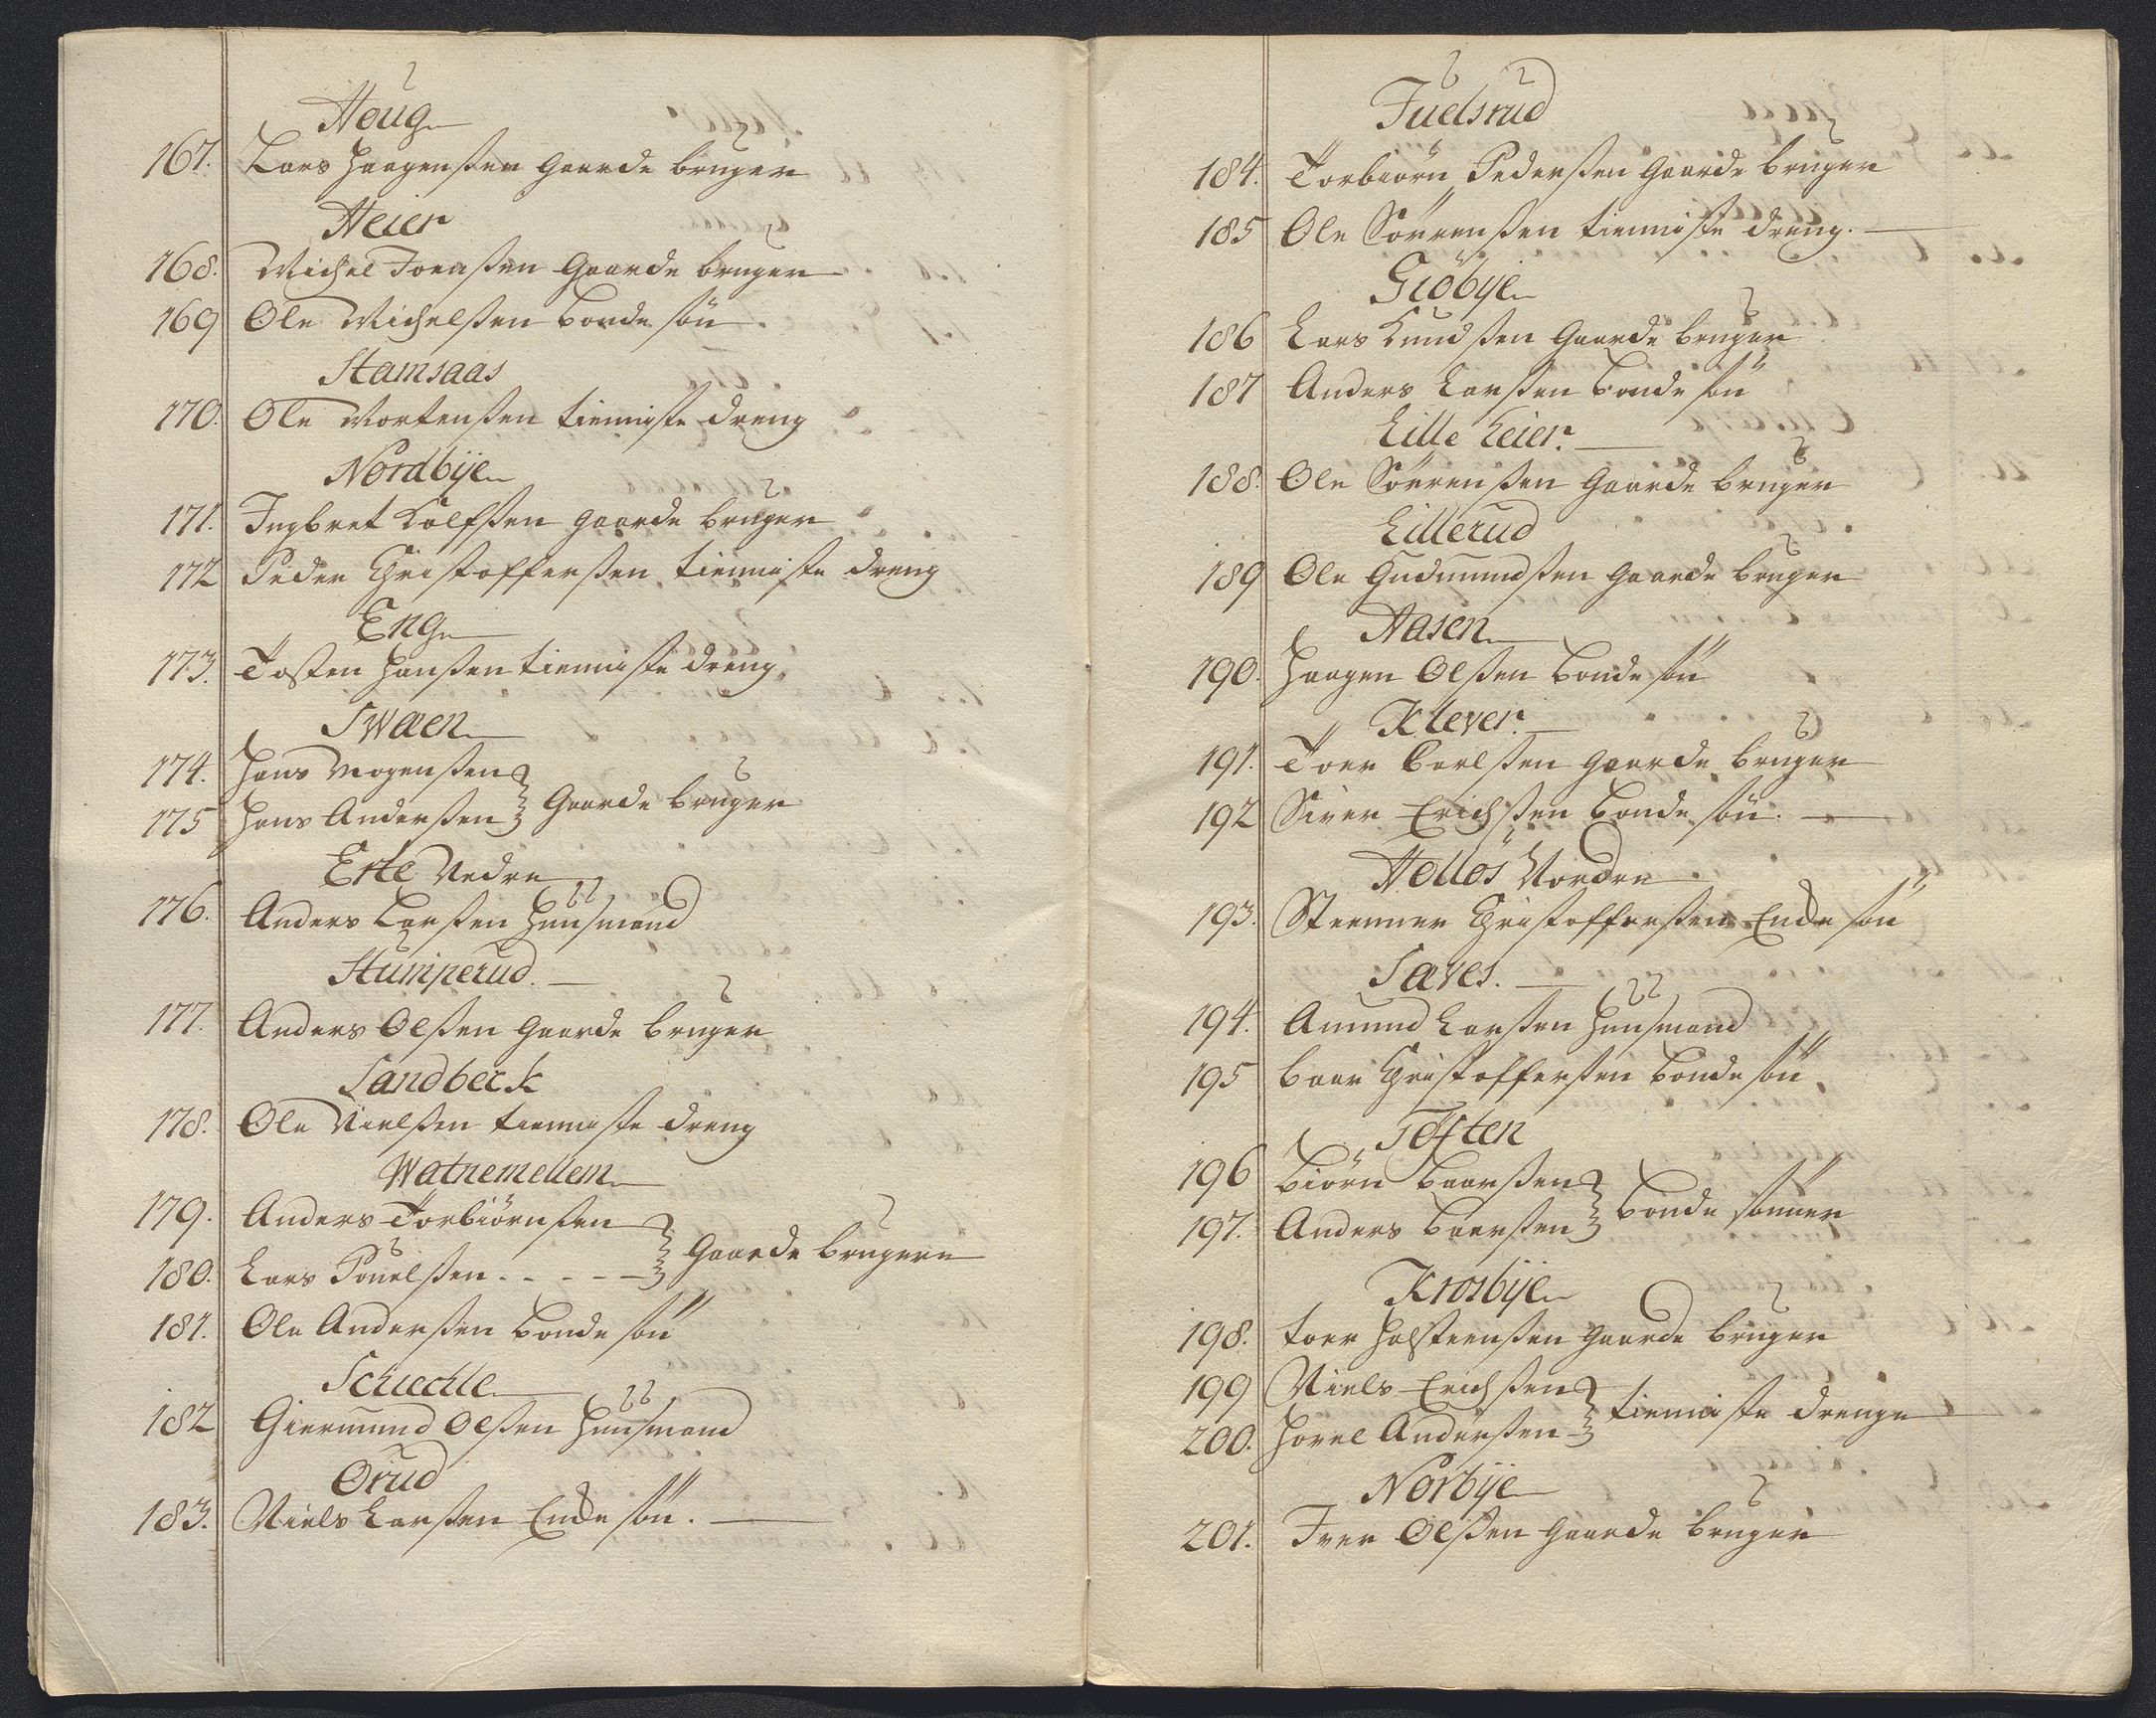 Houg
167. Lars Haagensßen Gaarde bruger
Heier
168. Michel Joensßen Gaarde bruger
169 Ole Michelsßen bonde søn.
Stamsaas
170. Ole Mortensßen tienniste dreng
Nordbÿe
171. Ingbret Rolfsßen gaarde bruger
172 Peder Christoffersßen tienniste dreng
Eng
173. Tosten Hansßen tienniste dreng.
Swaen
174. Hans Mogensßen
175 Hans Andersßen } Gaarde bruger
Erte Nedre
176. Anders Larsßen Huusmand
Stumperud.
177. Anders Olsßen Gaarde bruger
Sandbeck
178. Ole Nielsßen tienniste dreng
Watnemellem
179. Anders Torbiörnsßen
180. Lars Pouelsßen - - - - - } Gaarde brugere
181. Ole Andersßen bonde søn
Schiechle
182 Giermund Olsßen Huusmand
Örud
183. Niels Larsßen Ende søn.
Fuelsrud
184. Torbiörn Pedersßen Gaarde bruger
185 Ole Sörrensßen tienniste dreng.
Giöbÿe
186 Lars Knudsßen Gaarde bruger
187 Anders Larsßen bonde søn
Lille Leier.
188. Ole Sörrensßen Gaarde bruger
Lillerud
189 Ole Gudmundsßen Gaarde bruger
Aasen
190. Haagen Olsßen bonde søn
Klever.
191. Toer Carlsßen gaarde bruger
192 Siver Erichsßen bonde søn.
Holløs Nordre
193. Steenner Christoffersßen Ende søn
Saxes.
194. Amund Larsßen Huusmand
195 Baar Christoffersßen bonde søn.
Toften
196 Biörn Baarsßen
197. Anders Baarsßen } bonde sønner
Krosbÿe
198. toer Halsteensßen gaarde bruger
199 Niels Erichsßen
200. Hovel Andersßen } tienniste drenge
Norbÿe
201. Iver Olsßen Gaarde bruger